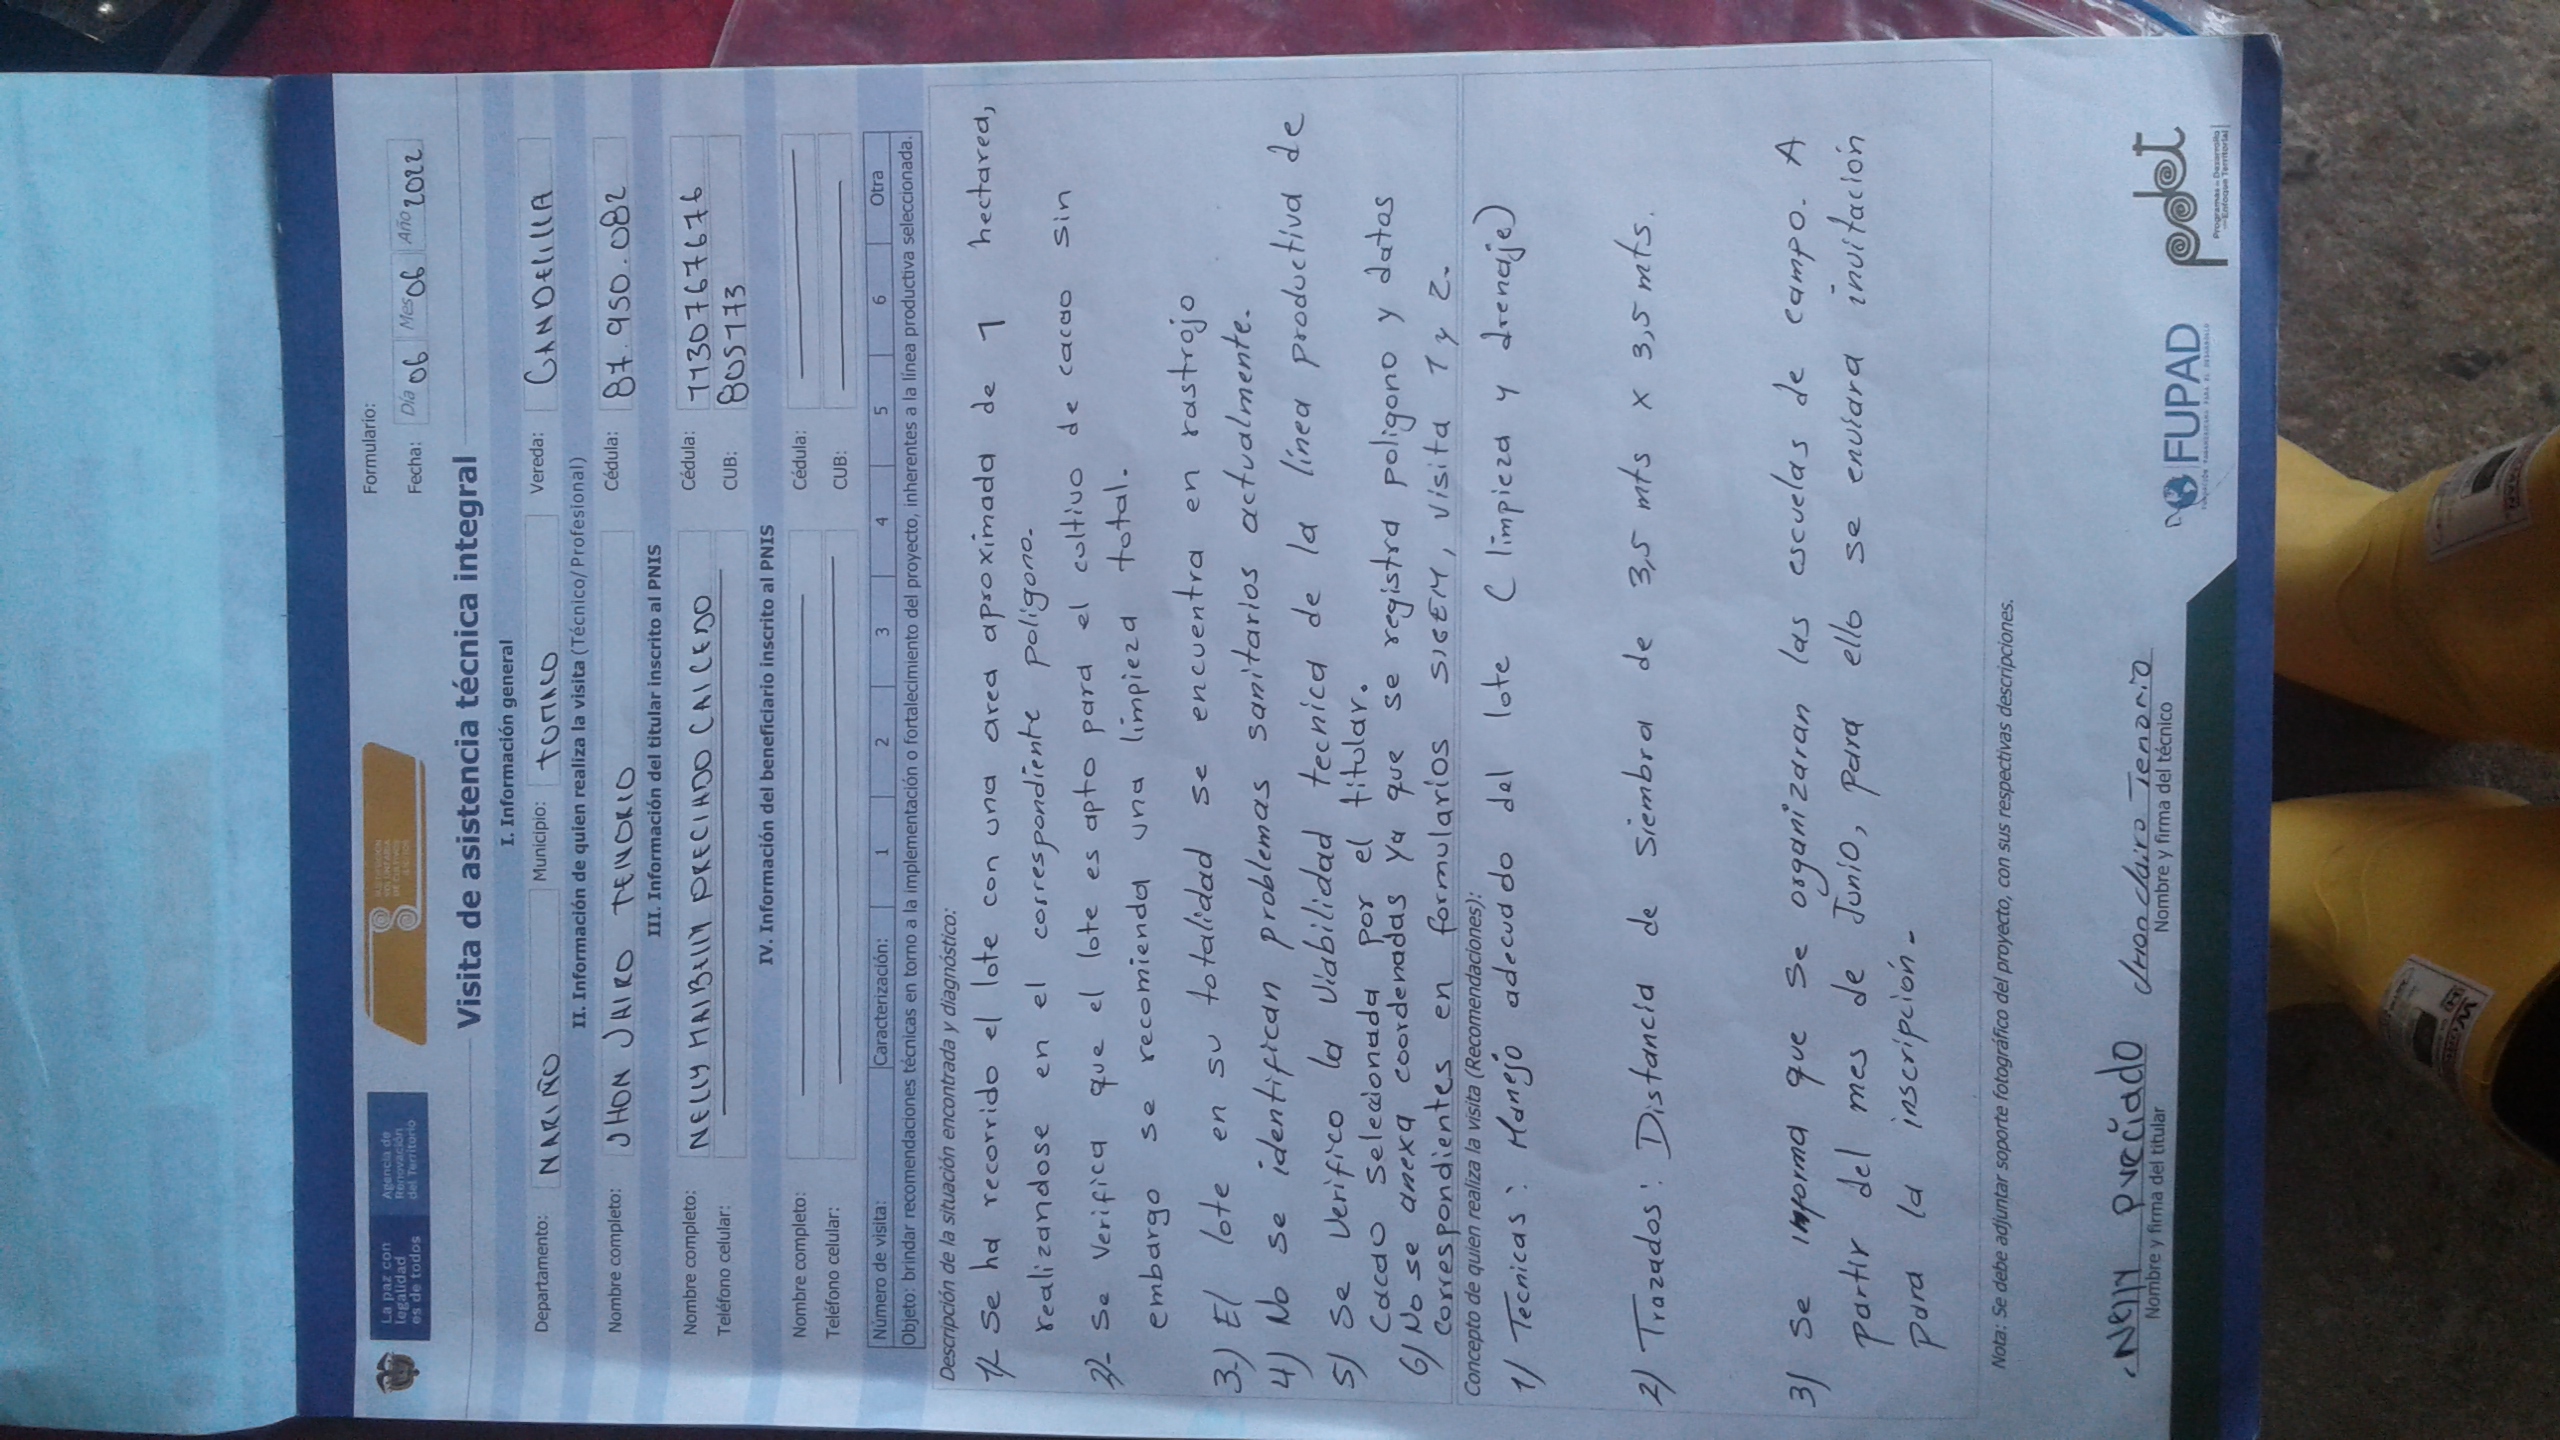 La paz con
legalidad
es de todos
Agencia de
Renovación
del Territorio
SUSTITUCIÓN
VOLUNTARIA
DE CULTIVOS
ILÍCITOS
Formulario:
Fecha: Día 06 Mes 06 Año 2022
Visita de asistencia técnica integral
I. Información general
Departamento: NARIÑO Municipio: TUMACO Vereda: CANDELILLA
II. Información de quien realiza la visita (Técnico/Profesional)
Nombre completo: JHON JAIRO TENORIO Cédula: 87.950.082
III. Información del titular inscrito al PNIS
Nombre completo: NELLY MAIBELLY PRECIADO CAICEDO Cédula: 1130767676
Teléfono celular: CUB: 805173
IV. Información del beneficiario inscrito al PNIS
Nombre completo: Cédula:
Teléfono celular: CUB:
Número de visita: Caracterización: 1 2 3 4 5 6 Otra
Objeto: brindar recomendaciones técnicas en torno a la implementación o fortalecimiento del proyecto, inherentes a la línea productiva seleccionada.
Descripción de la situación encontrada y diagnóstico:
1)- Se ha recorrido el lote con una area aproximada de 1 hectarea,
realizandose en el correspondiente poligono.
2)- Se Verifica que el lote es apto para el cultivo de cacao sin
embargo se recomienda una limpieza total.
3-) El lote en su totalidad se encuentra en rastrojo
4) No se identifican problemas sanitarios actualmente.
5) Se Verifico la Viabilidad tecnica de la línea productiva de
Cacao Seleccionada por el titular.
6) No se anexa coordenadas Ya que se registra poligono y datos
Correspondientes en formularios SIGEM, visita 1 y 2.
Concepto de quien realiza la visita (Recomendaciones):
1) Tecnicas: Manejo adecuado del lote (limpieza y drenaje)
2) Trazados: Distancia de Siembra de 3,5 mts x 3,5 mts.
3) Se informa que se organizaran las escuelas de campo. A
partir del mes de Junio, para ello se enviara invitación
para la inscripción.
Nota: Se debe adjuntar soporte fotográfico del proyecto, con sus respectivas descripciones.
Nelly preciado
Nombre y firma del titular
Jhon Jairo Tenorio
Nombre y firma del técnico
FUPAD
FUNDACIÓN PANAMERICANA PARA EL DESARROLLO
pdet
Programas de Desarrollo
con Enfoque Territorial